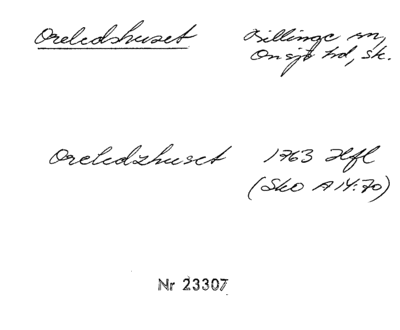 Oreledshuset Billinge sn,
Onsjö hd, Sk.
Oreledzhuset 1763 Hfl
(Sko A 14:70)
Nr 23307